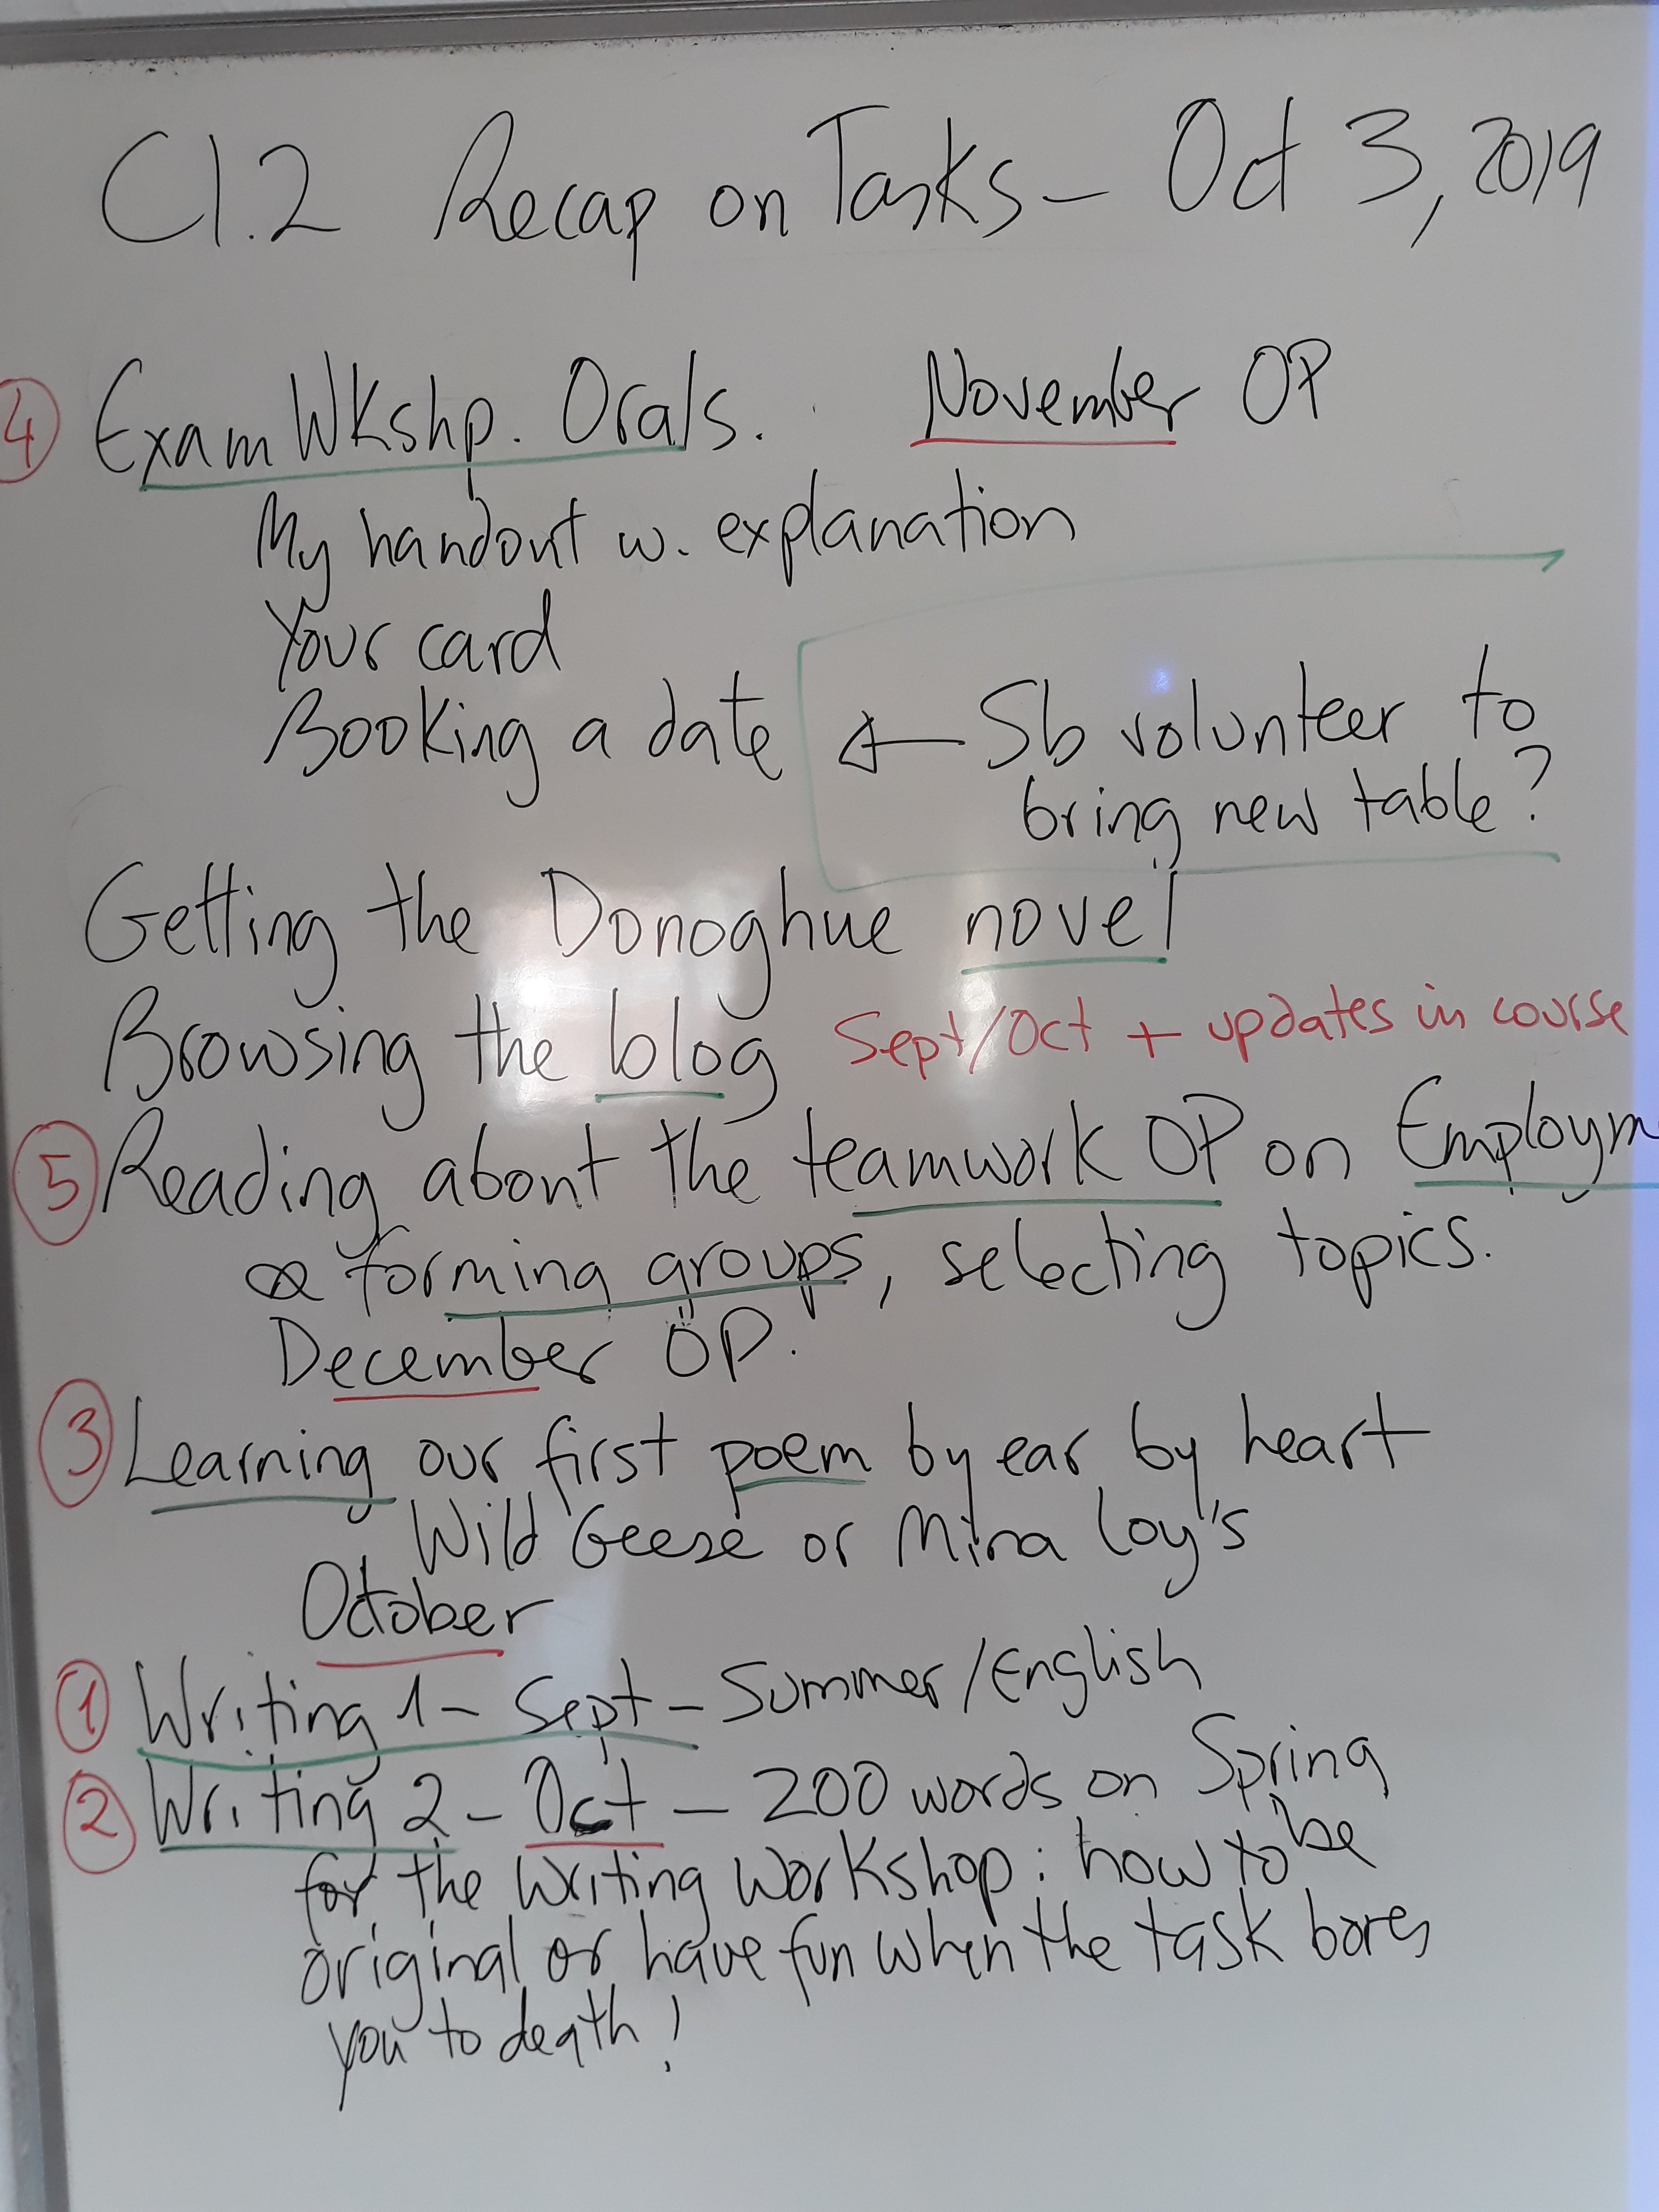 C1.2 Recap on Tasks - Oct 3, 2019
④ Exam Wkshp. Orals. November OP
My handout w. explanation
Your card
Booking a date ← Sb volunteer to
bring new table?
Getting the Donoghue novel
Browsing the blog Sept/Oct + updates in course
⑤ Reading about the teamwork OP on Employm
& forming groups, selecting topics.
December OP.
③ Learning our first poem by ear by heart
Wild Geese or Mina Loy's
October
① Writing 1 - Sept - Summer/English
② Writing 2 - Oct - 200 words on Spring
for the Writing Workshop: how to be
original or have fun when the task bores
you to death!